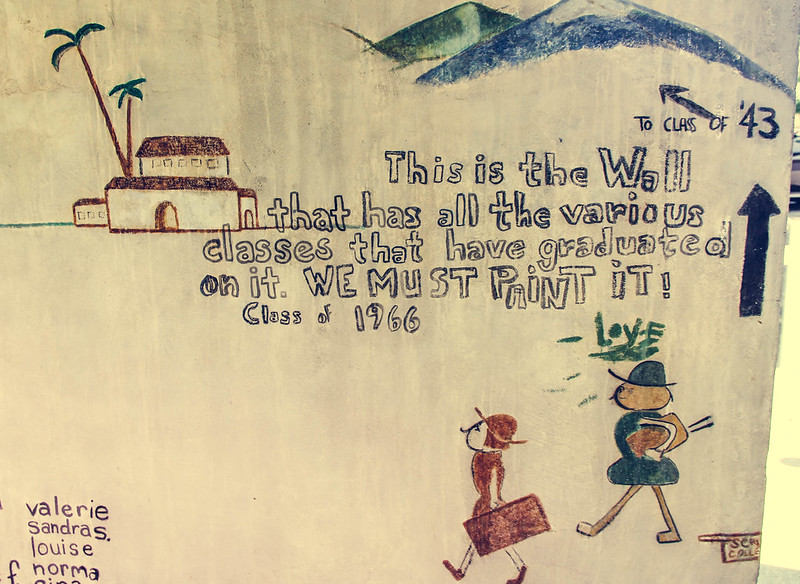 TO CLASS OF '43
This is the Wall
that has all the various
classes that have graduated
on it. WE MUST PAINT IT!
Class of 1966
LOVE
valerie
sandras.
louise
norma